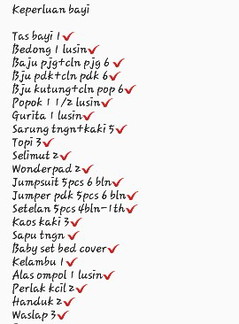 Keperluan bayi
Tas bayi 1✔
Bedong 1 lusin✔
Baju pjg+cln pjg 6 ✔
Bju pdk+cln pdk 6✔
Bju kutung+cln pop 6✔
Popok 1 1/2 lusin✔
Gurita 1 lusin✔
Sarung tngn+kaki 5✔
Topi 3✔
Selimut 2✔
Wonderpad 2✔
Jumpsuit 5pcs 6 bln✔
Jumper pdk 5pcs 6 bln✔
Setelan 5pcs 4bln-1th✔
Kaos kaki 3✔
Sapu tngn ✔
Baby set bed cover✔
Kelambu 1✔
Alas ompol 1 lusin✔
Perlak kcil 2✔
Handuk 2✔
Waslap 3✔